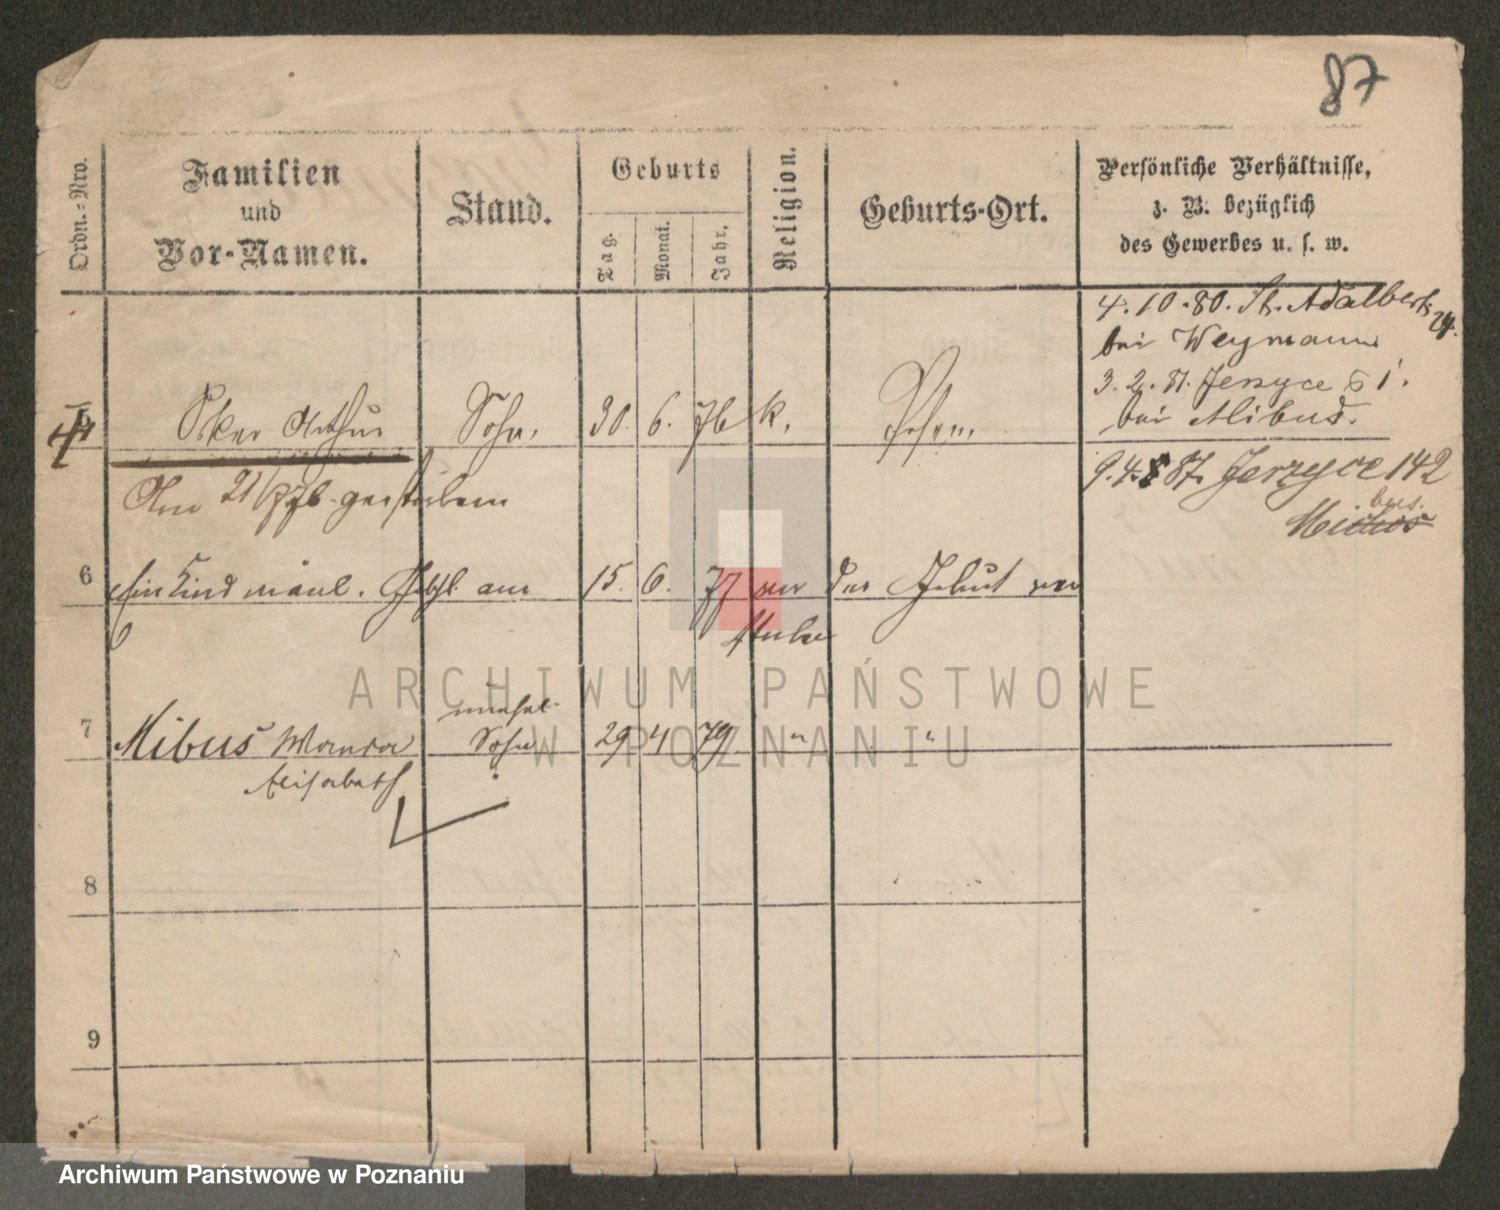 87
Ordn.-Nro.
Familien
und
Vor-Namen.
Stand.
Geburts
Tag.
Monat.
Jahr.
Religion.
Geburts-Ort.
Persönliche Verhältnisse,
z. B. bezüglich
des Gewerbes u. s. w.
4.10.80. St. Adalbert 24.
bei Weymann
3.2.81. Jerzyce 61.
bei Mibus.
4 Oskar Arthur Sohn. 30. 6. 76 k. Posen.
9.4.87. Jerzyce 142
bus.
Am 21/7 76. gestorben
6 Ein Kind mänl. Geschl. am 15. 6. 77 vor der Geburt ver
storben
7 Mibus Wanda unehel. 29 4 79. " "
Elisabeth Sohn
8
9
ARCHIWUM PAŃSTWOWE
W POZNANIU
Archiwum Państwowe w Poznaniu